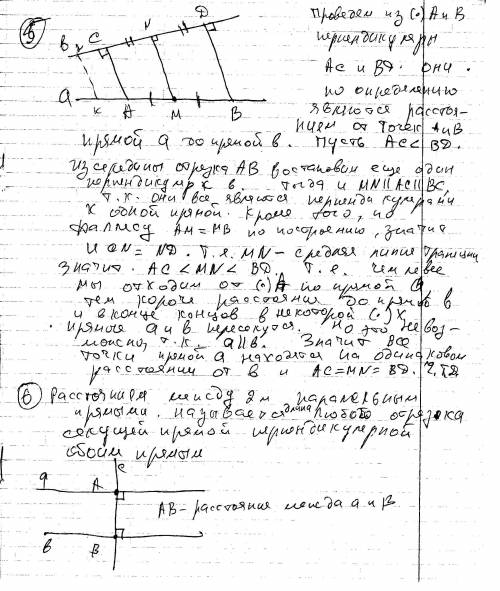 б
Проведем из (·) A и B
перпендикуляры
AC и BD. они
по определению
являются расстоя-
нием от точек A и B
прямой a до прямой в. Пусть AC < BD.
из середины отрезка AB востановим еще один
перпендикуляр к в. Тогда и MN || AC || BC,
т.к. они все являются перпендикулярами
к одной прямой. Кроме того, по
фалесу AM = MB по построению, значит
и CN = ND. Т.е. MN – средняя линия трапеции
Значит. AC < MN < BD. Т.е. чем левее
мы отходим от (·) A по прямой a
тем короче расстояние до прямой в
и в конце концов в некоторой (·) X
прямые a и в пересекутся. Но это невоз-
можно, т.к. a || в. Значит все
точки прямой a находятся на одинаковом
расстоянии от в и AC = MN = BD. Ч.Т.Д
B C N D
a K A M B
в Расстоянием между 2мя паралельными
прямыми. называется длина любого отрезка
секущей прямой перпендикулярной
обоим прямым
c
a A
AB – расстояние между a и в
в B